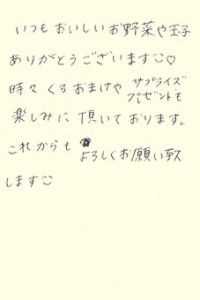 いつもおいしいお野菜や玉子
ありがとうございます☺♡
時々くるおまけやサプライズプレゼントも
楽しみに頂いております。
これからもよろしくお願い致
します☺